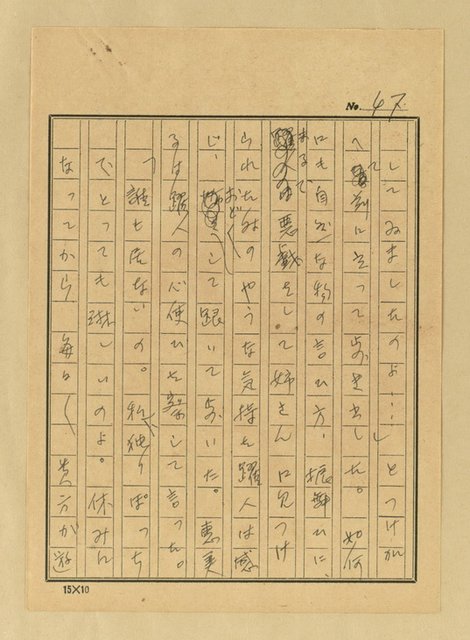 No. 47
してゐましたのよ……」とつけ加
へて先に立って歩き出した。如何
にも自然な物の言ひ方、振舞ひに、
まるで悪戯をして姉さんに見つけ
られた時のやうな気持を躍人は感
じ、おどおどして跟いて歩いた。恵美
るは躍人の心使ひを察して言った。
「誰も居ないの。私、独りぽっち
でとっても淋しいのよ。休みに
なってから 毎日〱 貴方が遊
15×10